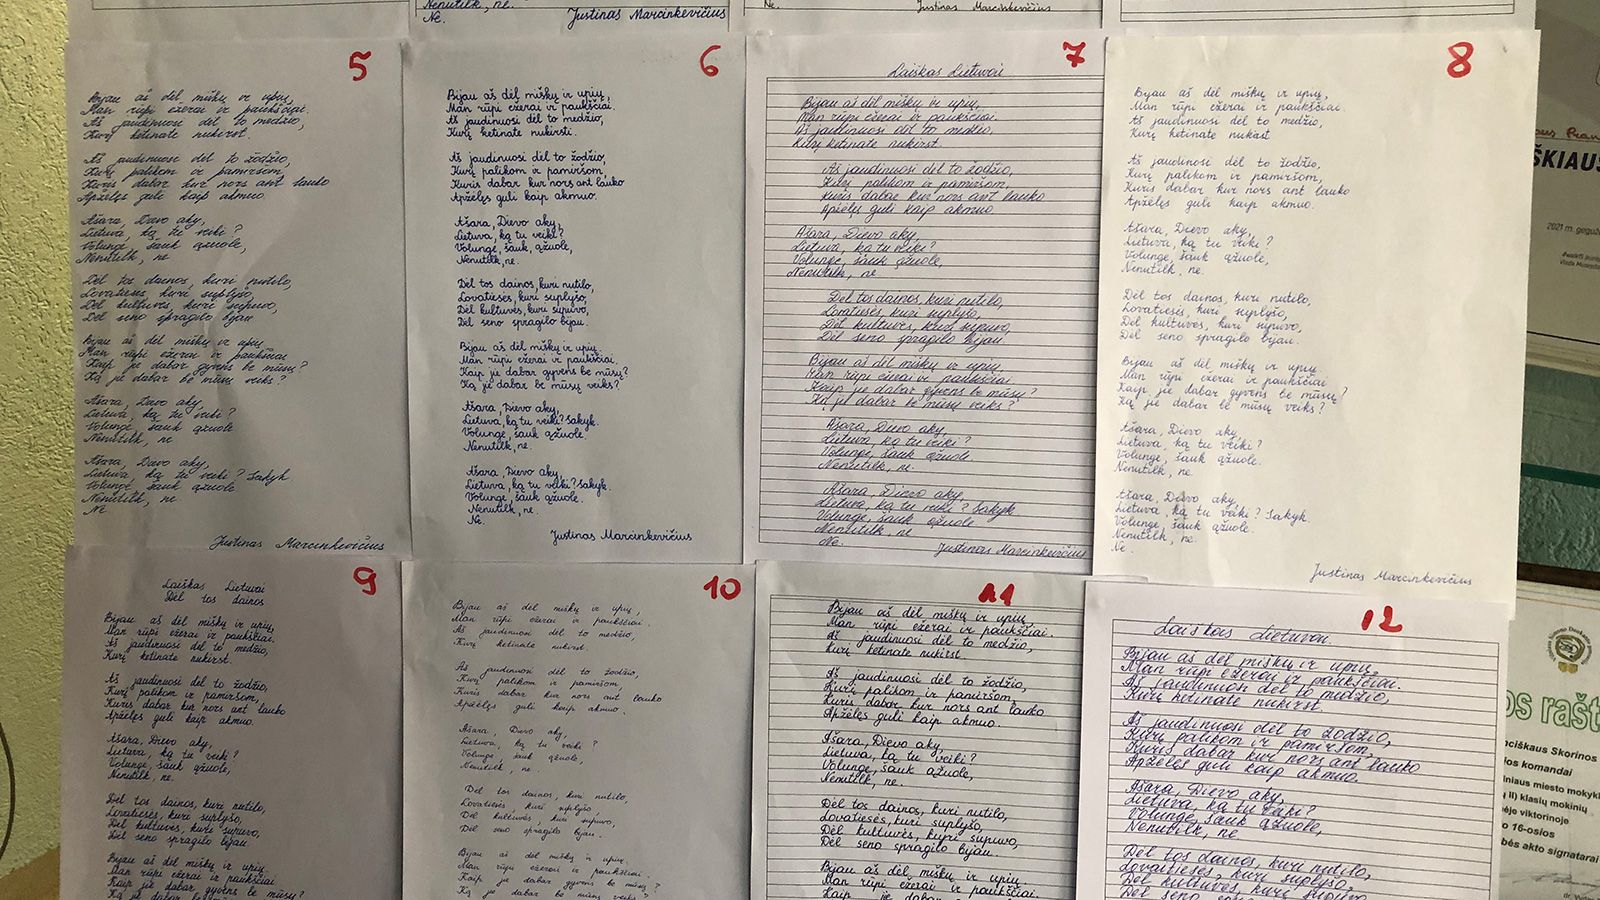 Nenutilk, ne.
Ne.
Justinas Marcinkevičius
Ne.
Justinas Marcinkevičius
5
Bijau aš dėl miškų ir upių,
Man rūpi ežerai ir paukščiai.
Aš jaudinuosi dėl to medžio,
Kurį ketinate nukirst.
Aš jaudinuosi dėl to žodžio,
Kurį palikom ir pamiršom,
Kuris dabar kur nors ant lauko
Apžėlęs guli kaip akmuo.
Ašara, Dievo aky,
Lietuva, ką tu veiki?
Volunge, šauk ąžuole,
Nenutilk, ne.
Dėl tos dainos, kuri nutilo,
Lovatiesės, kuri suplyšo,
Dėl kultuvės, kuri supuvo,
Dėl seno spragilo bijau.
Bijau aš dėl miškų ir upių
Man rūpi ežerai ir paukščiai
Kaip jie dabar gyvens be mūsų?
Ką jie dabar be mūsų veiks?
Ašara, Dievo aky,
Lietuva, ką tu veiki?
Volunge, šauk ąžuole
Nenutilk, ne
Ašara, Dievo aky,
Lietuva, ką tu veiki? Sakyk
Volunge, šauk ąžuole
Nenutilk, ne
Ne
Justinas Marcinkevičius
6
Bijau aš dėl miškų ir upių,
Man rūpi ežerai ir paukščiai.
Aš jaudinuosi dėl to medžio,
Kurį ketinate nukirsti.
Aš jaudinuosi dėl to žodžio,
Kurį palikom ir pamiršom,
Kuris dabar kur nors ant lauko
Apžėlęs guli kaip akmuo.
Ašara, Dievo aky,
Lietuva, ką tu veiki?
Volunge, šauk, ąžuole,
Nenutilk, ne.
Dėl tos dainos, kuri nutilo,
Lovatiesės, kuri suplyšo,
Dėl kultuvės, kuri supuvo,
Dėl seno spragilo bijau.
Bijau aš dėl miškų ir upių.
Man rūpi ežerai ir paukščiai.
Kaip jie dabar gyvens be mūsų?
Ką jie dabar be mūsų veiks?
Ašara, Dievo aky,
Lietuva, ką tu veiki? Sakyk.
Volunge, šauk ąžuole,
Nenutilk, ne.
Ašara, Dievo aky.
Lietuva, ką tu veiki? Sakyk.
Volunge, šauk ąžuole.
Nenutilk, ne.
Ne.
Justinas Marcinkevičius
7
Laiškas Lietuvai
Bijau aš dėl miškų ir upių,
Man rūpi ežerai ir paukščiai.
Aš jaudinuosi dėl to medžio
Kurį ketinate nukirst.
Aš jaudinuosi dėl to žodžio,
Kurį palikom ir pamiršom,
Kuris dabar kur nors ant lauko
Apžėlęs guli kaip akmuo
Ašara, Dievo aky,
Lietuva, ką tu veiki?
Volunge, šauk ąžuole,
Nenutilk, ne
Dėl tos dainos, kuri nutilo,
Lovatiesės, kuri suplyšo,
Dėl kultuvės, kuri supuvo,
Dėl seno spragilo bijau.
Bijau aš dėl miškų ir upių
Man rūpi ežerai ir paukščiai
Kaip jie dabar gyvens be mūsų?
Ką jie dabar be mūsų veiks?
Ašara, Dievo aky,
Lietuva, ką tu veiki?
Volunge, šauk ąžuole.
Nenutilk, ne
Ašara, Dievo aky,
Lietuva, ką tu veiki? Sakyk
Volunge, šauk ąžuole
Nenutilk, ne
Ne.
Justinas Marcinkevičius
8
Bijau aš dėl miškų ir upių,
Man rūpi ežerai ir paukščiai.
Aš jaudinuosi dėl to medžio,
Kurį ketinate nukirst
Aš jaudinuosi dėl to žodžio,
Kurį palikom ir pamiršom,
Kuris dabar kur nors ant lauko
Apžėlęs guli kaip akmuo.
Ašara, Dievo aky,
Lietuva, ką tu veiki?
Volunge, šauk ąžuole,
Nenutilk, ne.
Dėl tos dainos, kuri nutilo,
Lovatiesės, kuri suplyšo,
Dėl kultuvės, kuri supuvo,
Dėl seno spragilo bijau.
Bijau aš dėl miškų ir upių.
Man rūpi ežerai ir paukščiai
Kaip jie dabar gyvens be mūsų?
Ką jie dabar be mūsų veiks?
Ašara, Dievo aky,
Lietuva, ką tu veiki?
Volunge, šauk ąžuole.
Nenutilk, ne.
Ašara, Dievo aky,
Lietuva, ką tu veiki? Sakyk.
Volunge, šauk ąžuole.
Nenutilk, ne.
Ne.
Justinas Marcinkevičius
ŠKIAUS
2021 m.
9
Laiškas Lietuvai
Dėl tos dainos
Bijau aš dėl miškų ir upių,
Man rūpi ežerai ir paukščiai.
Aš jaudinuosi dėl to medžio,
Kurį ketinate nukirst.
Aš jaudinuosi dėl to žodžio,
Kurį palikom ir pamiršom,
Kuris dabar kur nors ant lauko
Apžėlęs guli kaip akmuo.
Ašara, Dievo aky,
Lietuva, ką tu veiki?
Volunge, šauk ąžuole,
Nenutilk, ne.
Dėl tos dainos, kuri nutilo,
Lovatiesės, kuri suplyšo,
Dėl kultuvės, kuri supuvo,
Dėl seno spragilo bijau.
Bijau aš dėl miškų ir upių
Man rūpi ežerai ir paukščiai
Kaip jie dabar gyvens be mūsų?
Ką jie dabar be mūsų veiks?
10
Bijau aš dėl miškų ir upių,
Man rūpi ežerai ir paukščiai.
Aš jaudinuosi dėl to medžio,
Kurį ketinate nukirst.
Aš jaudinuosi dėl to žodžio,
Kurį palikom ir pamiršom,
Kuris dabar kur nors ant lauko
Apžėlęs guli kaip akmuo.
Ašara, Dievo aky,
Lietuva, ką tu veiki?
Volunge, šauk ąžuole,
Nenutilk, ne.
Dėl tos dainos, kuri nutilo,
Lovatiesės, kuri suplyšo,
Dėl kultuvės, kuri supuvo,
Dėl seno spragilo bijau.
Bijau aš dėl miškų ir upių.
Man rūpi ežerai ir paukščiai.
Kaip jie dabar gyvens be mūsų?
Ką jie dabar be mūsų veiks?
11
Bijau aš dėl miškų ir upių,
Man rūpi ežerai ir paukščiai.
Aš jaudinuosi dėl to medžio,
kurį ketinate nukirst.
Aš jaudinuosi dėl to žodžio,
Kurį palikom ir pamiršom,
Kuris dabar kur nors ant lauko
Apžėlęs guli kaip akmuo.
Ašara, Dievo aky,
Lietuva, ką tu veiki?
Volunge, šauk ąžuole,
Nenutilk, ne.
Dėl tos dainos, kuri nutilo,
Lovatiesės, kuri suplyšo,
Dėl kultuvės, kuri supuvo,
Dėl seno spragilo bijau.
Bijau aš dėl miškų ir upių
Man rūpi ežerai ir paukščiai.
12
Laiškas Lietuvai
Bijau aš dėl miškų ir upių,
Man rūpi ežerai ir paukščiai.
Aš jaudinuosi dėl to medžio,
Kurį ketinate nukirst.
Aš jaudinuosi dėl to žodžio,
Kurį palikom ir pamiršom,
Kuris dabar kur nors ant lauko
Apžėlęs guli kaip akmuo.
Ašara, Dievo aky,
Lietuva, ką tu veiki?
Volunge, šauk ąžuole,
Nenutilk, ne
Dėl tos dainos, kuri nutilo,
Lovatiesės, kuri suplyšo,
Dėl kultuvės, kuri supuvo
os rašt
nciškaus Skorinos
os komandai
lniaus miesto mokykl
II) klasių mokinių
ėje viktorinoje
o 16-osios
bės akto signatarai